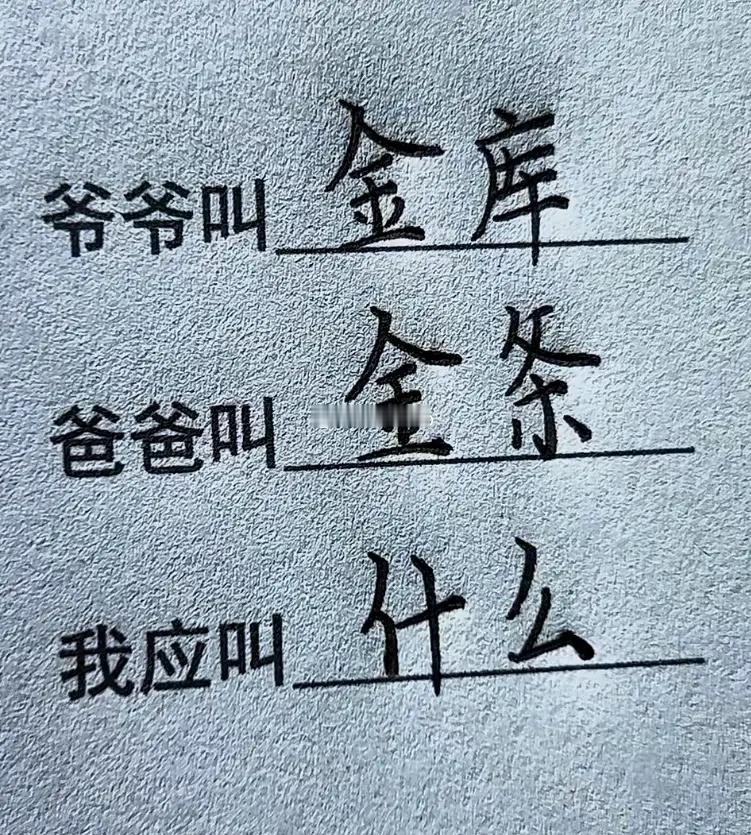 爷爷叫 金库
爸爸叫 金条
我应叫 什么